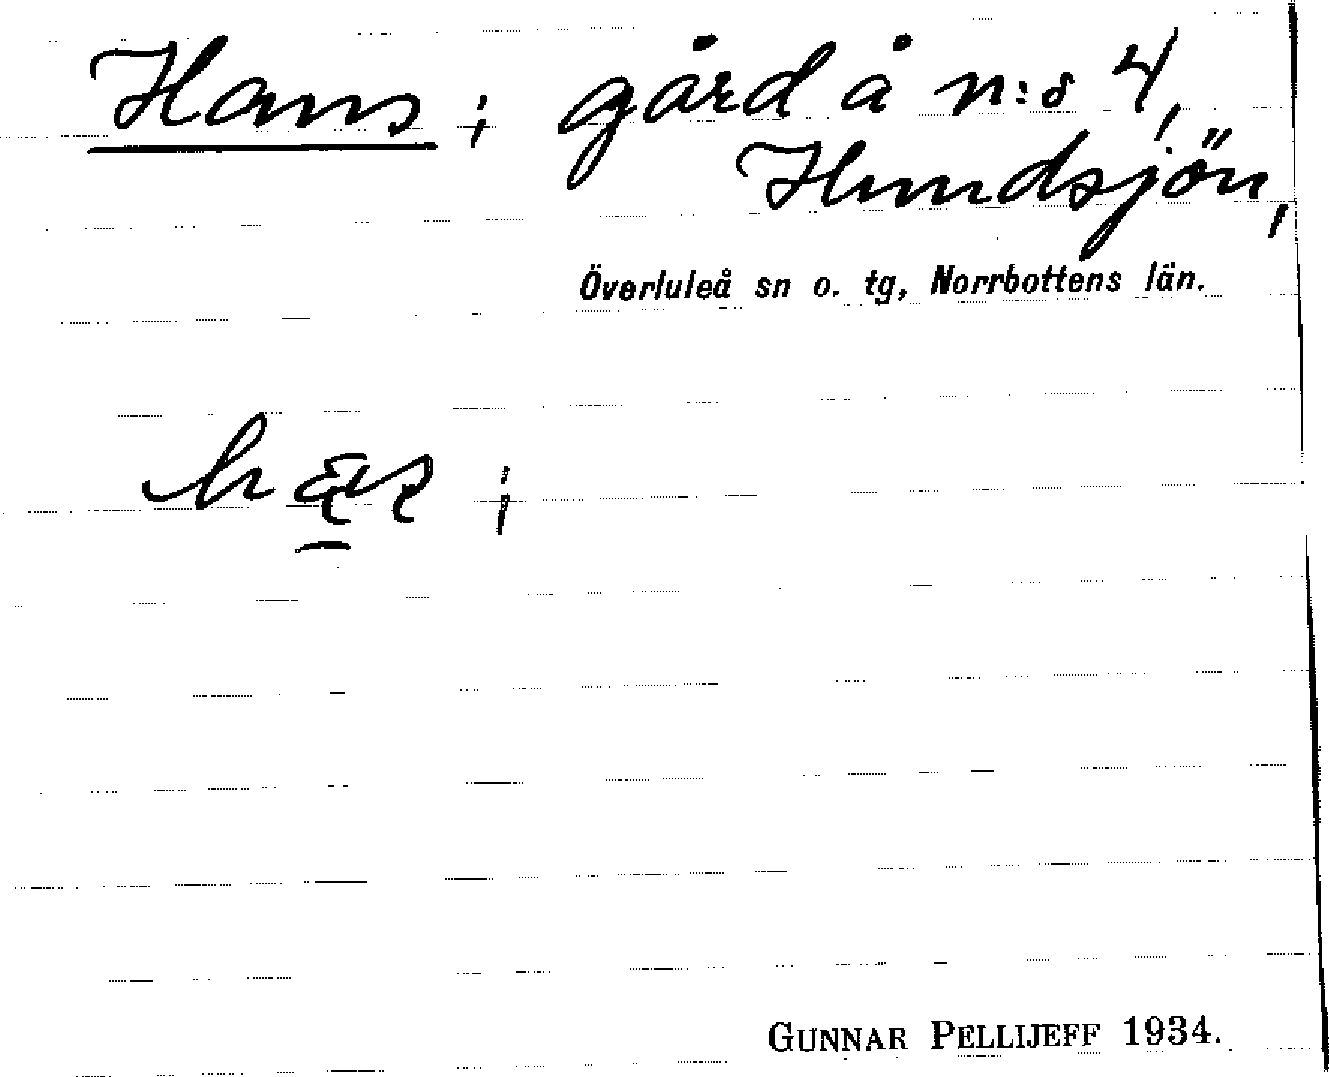 Hans; gård å n:o 4,
Hundsjön,
Överluleå sn o. tg, Norrbottens län.
GUNNAR PELLIJEFF 1934.